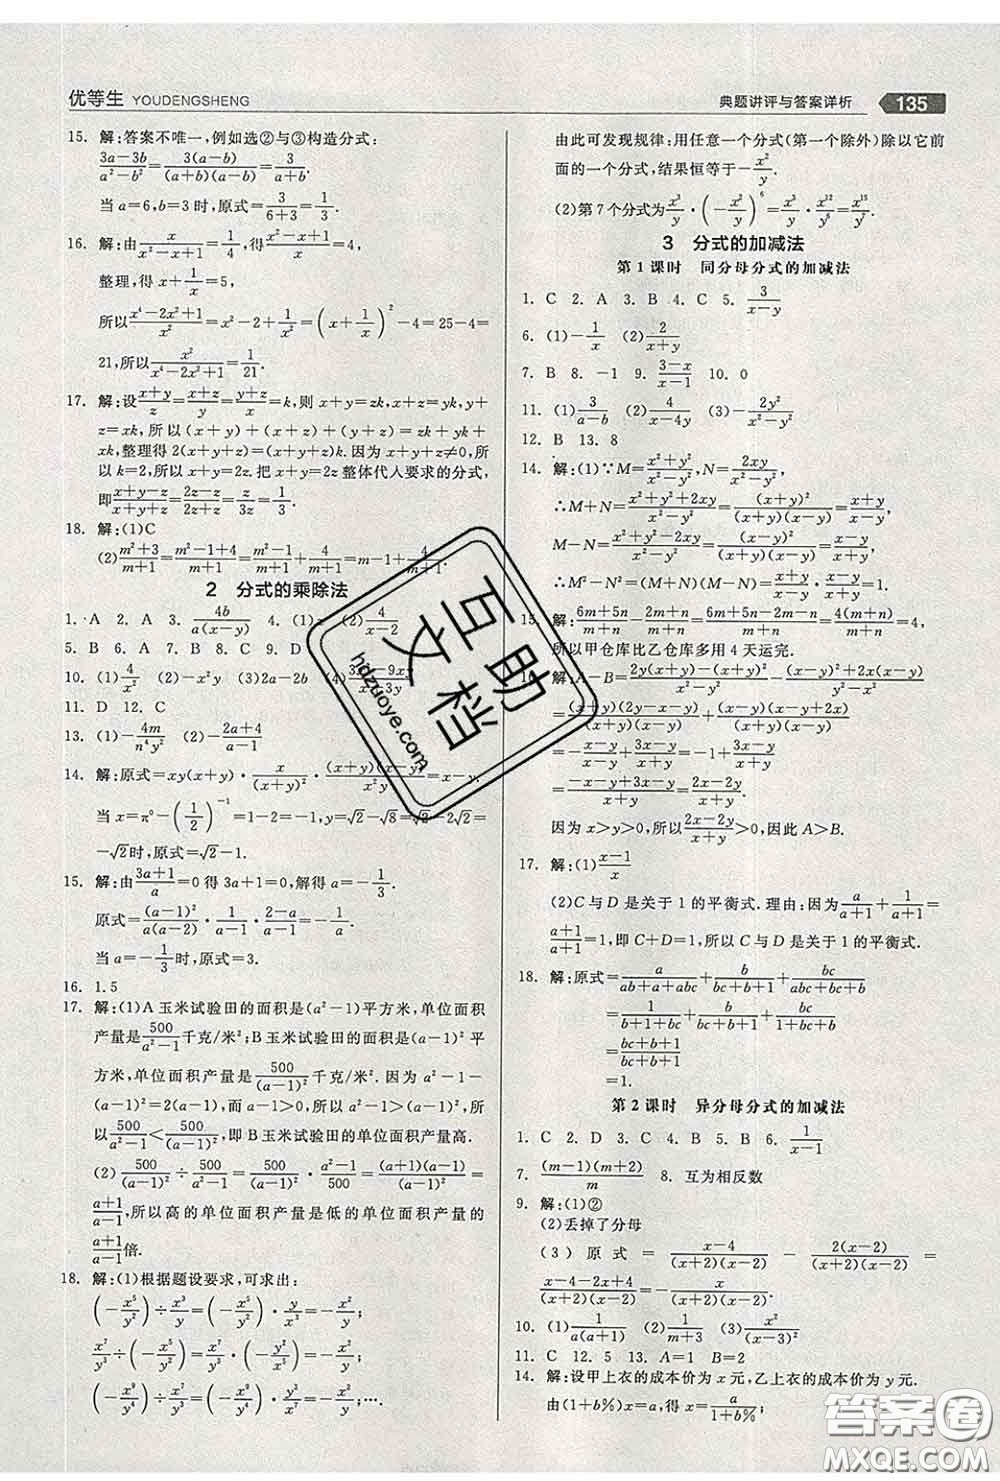 优等生 YOUDENGSHENG
典题讲评与答案详析 135
15. 解:答案不唯一,例如选②与③构造分式:
(3a-3b)/(a²-b²)=3(a-b)/((a+b)(a-b))=3/(a+b).
当a=6,b=3时,原式=3/(6+3)=1/3.
16. 解:由x/(x²-x+1)=1/4,得(x²-x+1)/x=4,
整理,得x+1/x=5,
所以(x⁴-2x²+1)/x²=x²-2+1/x²=(x+1/x)²-4=25-4=
21,所以x²/(x⁴-2x²+1)=1/21.
17. 解:设(x+y)/z=(x+z)/y=(y+z)/x=k,则x+y=zk,x+z=yk,y+z
=xk,所以(x+y)+(x+z)+(y+z)=zk+yk+
xk,整理得2(x+y+z)=(x+y+z)k.因为x+y+z≠0,所
以k=2,所以x+y=2z.把x+y=2z整体代入要求的分式,
即(x+y-z)/(x+y+z)=(2z-z)/(2z+z)=z/3z=1/3.
18. 解:(1)C
(2)(m²+3)/(m+1)=(m²-1+4)/(m+1)=(m²-1)/(m+1)+4/(m+1)=m-1+4/(m+1).
2 分式的乘除法
1. A 2. A 3. 4b/(a(x-y)) 4. (1) (2)
5. B 6. A 7. B 8. A 9. D
10. (1)4/x² (2)-x²y (3)2a-2b
11. D 12. C
13. (1)-4m/(n⁴y²) (2)-(2a+4)/(a-1)
14. 解:原式=xy(x+y)·x/(x+y)²·(x+y)(x-y)/=x-y.
当x=π⁰-(1/2)⁻¹=1-2=-1,y=√2-√8=√2-2√2=
-√2时,原式=√2-1.
15. 解:由(3a+1)/a=0得3a+1=0,解得a=-1/3.
原式=(a-1)²/(a(a-2))·1/(a-1)·(2-a)/(a-1)=-1/a.
当a=-1/3时,原式=3.
16. 1.5
17. 解:(1)A玉米试验田的面积是(a²-1)平方米,单位面积
产量是500/(a²-1)千克/米²;B玉米试验田的面积是(a-1)²平
方米,单位面积产量是500/(a-1)²千克/米².因为a²-1-
(a-1)²=2(a-1),而a-1>0,所以0<(a-1)²<a²-1,所
以500/(a²-1)<500/(a-1)²,即B玉米试验田的单位面积产量高.
(2)500/(a-1)²÷500/(a²-1)=500/(a-1)²·(a²-1)/500=(a+1)(a-1)/(a-1)²=
(a+1)/(a-1),所以高的单位面积产量是低的单位面积产量的
(a+1)/(a-1)倍.
18. 解:(1)根据题设要求,可求出:
(-x⁵/y²)÷x³/y=(-x⁵/y²)·y/x³=-x²/y;
x⁷/y³÷(-x⁵/y²)=x⁷/y³·(-y²/x⁵)=-x²/y;
(-x⁹/y⁴)÷x⁷/y³=(-x⁹/y⁴)·y³/x⁷=-x²/y;….
由此可发现规律:用任意一个分式(第一个除外)除以它前
面的一个分式,结果恒等于-x²/y.
(2)第7个分式为x³/y·(-x²/y)⁶=x³/y·x¹²/y⁶=x¹⁵/y⁷.
3 分式的加减法
第1课时 同分母分式的加减法
1. C 2. A 3. B 4. C 5. 3/(x-y)
6. (1)-1/x (2)2/(x+y)
7. B 8. -1 9. (3-x)/(x-1) 10. 0
11. (1)3/(a-b) (2)4/(x-4y) (3)-2y²/(x²-y²)
12. B 13. 8
14. 解:(1)∵M=(x²+y²)/(x²-y²),N=2xy/(x²-y²),
∴M+N=(x²+y²+2xy)/(x²-y²)=(x+y)²/((x+y)(x-y))=(x+y)/(x-y),
M-N=(x²+y²-2xy)/(x²-y²)=(x-y)²/((x+y)(x-y))=(x-y)/(x+y),
∴M²-N²=(M+N)(M-N)=(x+y)/(x-y)·(x-y)/(x+y)=1.
15. 解:(6m+5n)/(m+n)-(2m+n)/(m+n)=(6m+5n-2m-n)/(m+n)=4(m+n)/(m+n)=4,
所以甲仓库比乙仓库多用4天运完.
16. 解:A-B=
=(x-y)(x+y-2y+2x)/((x+y)(x-y))
=(2x-y)/(x+y).
因为x>y>0,所以(2x-y)/(x+y)>0,因此A>B.
17. 解:(1)(x-1)/x
(2)C与D是关于1的平衡式.理由:因为a/(a+1)+1/(a+1)=
(a+1)/(a+1)=1,即C+D=1,所以C与D是关于1的平衡式.
18. 解:原式=a/(ab+a+abc)+b/(bc+b+1)+bc/(abc+bc+b)=
1/(b+1+bc)+b/(bc+b+1)+bc/(1+bc+b)=
(bc+b+1)/(bc+b+1)
=1.
第2课时 异分母分式的加减法
1. C 2. D 3. D 4. A 5. B 6. 1/(x-1)
7. (m-1)(m+2)/m 8. 互为相反数
9. 解:(1)②
(2)丢掉了分母
(3)原式=(x-4)/((x+2)(x-2))-2(x-2)/((x+2)(x-2))=
(x-4-2x+4)/((x+2)(x-2))=-x/((x+2)(x-2)).
10. (1)1/(a(a+1)) (2)1/(m+3) (3)x²/(x-3)²
11. C 12. 5 13. A=1 B=2
14. 解:设甲上衣的成本价为x元,乙上衣的成本价为y元.
由(1+b%)x=a,得x=a/(1+b%);
互助文档
hdzuoye.com
答案圈
MXQE.COM